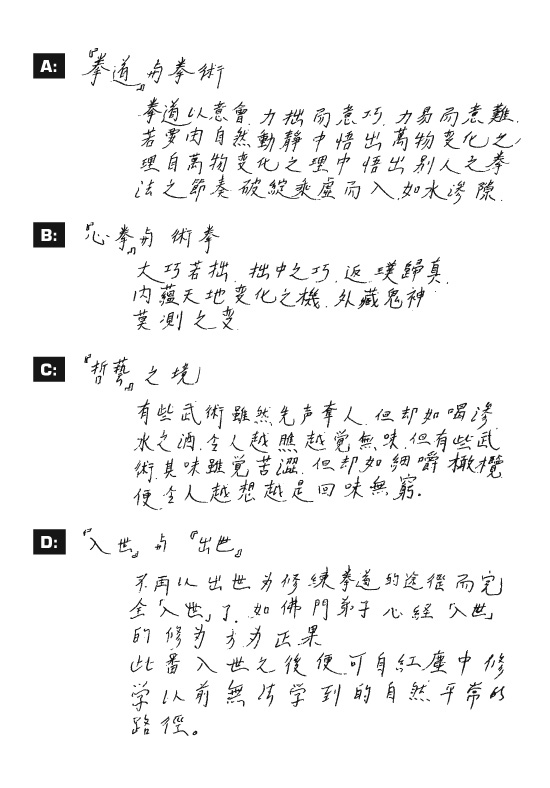 A: 『拳道』与拳術
拳道以意會，力拙而意巧，力易而意難，
若要內自然動靜中悟出萬物变化之
理自萬物变化之理中悟出别人之拳
法之節奏破綻乘虛而入，如水滲隙．
B: 『心拳』与術拳
大巧若拙，拙中之巧，返璞歸真．
內蘊天地变化之機，外藏鬼神
莫測之变
C: 『哲藝』之境
有些武術雖然先声奪人，但却如喝滲
水之酒，令人越瞧越覚無味，但有些武
術，其味雖覚苦澀，但却如細嚼橄欖
便令人越想越是回味無窮．
D: 『入世』与『出世』
不再以出世为修練拳道的途徑而完
全「入世」了，如佛門弟子心経「入世」
的修为方为正果
此番入世之後便可自紅塵中修
学以前無法学到的自然平常的
路徑。